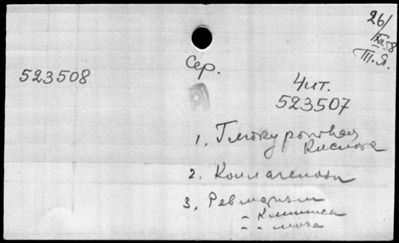 26/
XII.58
Т.Я.
Сер.
523508
Чит.
523507
1. Глюкуроновая
кислота
2. Коллагенозы
3. Ревматизм
" клиника
" " моча